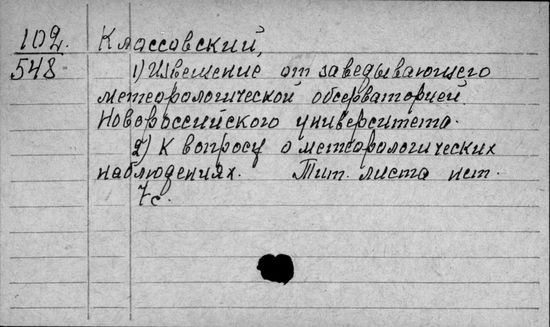 102. Классовский,
548 1) Извещение от заведывающего
метеорологической обсерваторией
Новороссийского университета.
2) К вопросу о метеорологических
наблюдениях. Тит. листа нет.
7с.